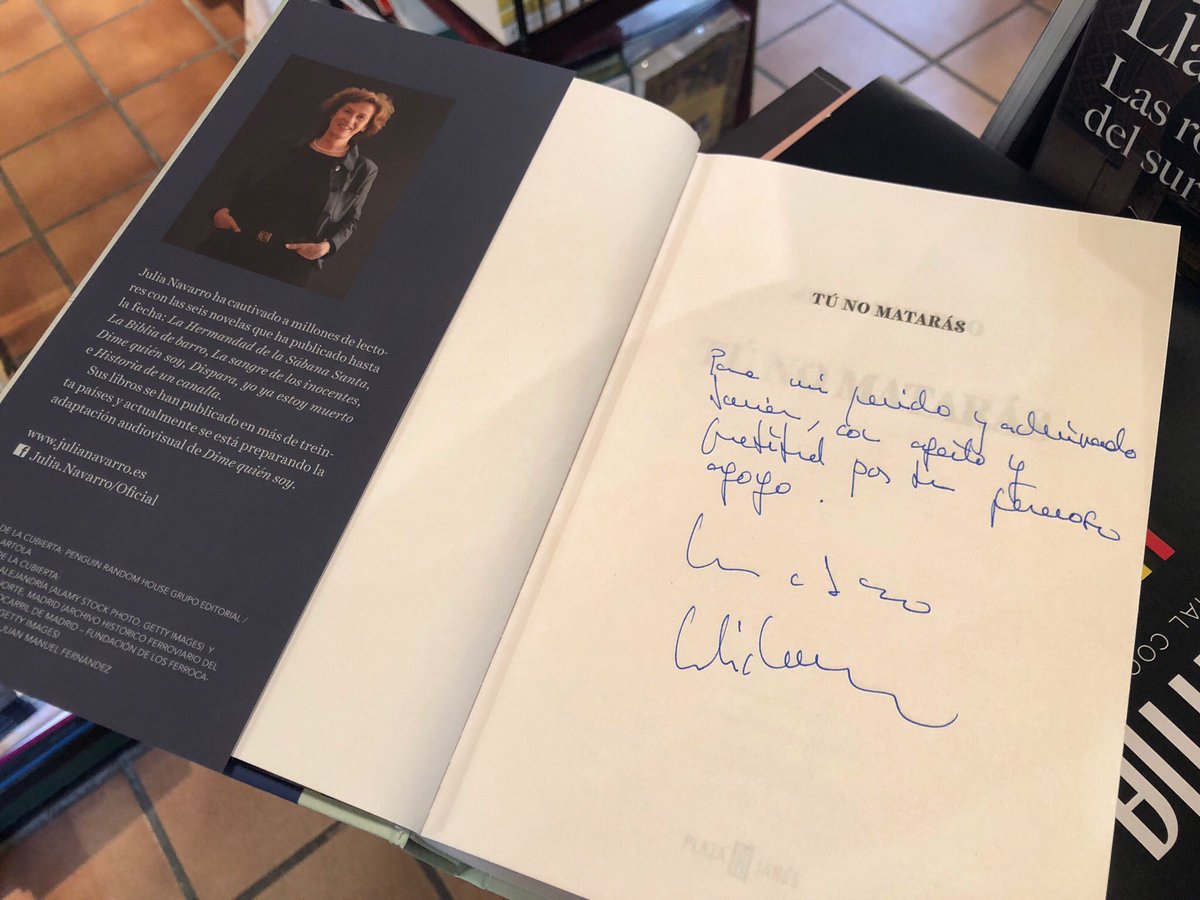 Julia Navarro ha cautivado a millones de lecto-
res con las seis novelas que ha publicado hasta
la fecha: La Hermandad de la Sábana Santa,
La Biblia de barro, La sangre de los inocentes,
Dime quién soy, Dispara, yo ya estoy muerto
e Historia de un canalla.
Sus libros se han publicado en más de trein-
ta países y actualmente se está preparando la
adaptación audiovisual de Dime quién soy.
www.julianavarro.es
Julia.Navarro/Oficial
DE LA CUBIERTA: PENGUIN RANDOM HOUSE GRUPO EDITORIAL /
ARTOLA
DE LA CUBIERTA:
ALEJANDRÍA (ALAMY STOCK PHOTO, GETTY IMAGES) Y
NORTE, MADRID (ARCHIVO HISTÓRICO FERROVIARIO DEL
OCARRIL DE MADRID – FUNDACIÓN DE LOS FERROCA-
GETTY IMAGES)
JUAN MANUEL FERNÁNDEZ
TÚ NO MATARÁS
Para mi querido y admirado
Javier, con afecto y
gratitud por tu generoso
apoyo.
Un abrazo
PLAZA JANÉS
Lla
Las re
del sur